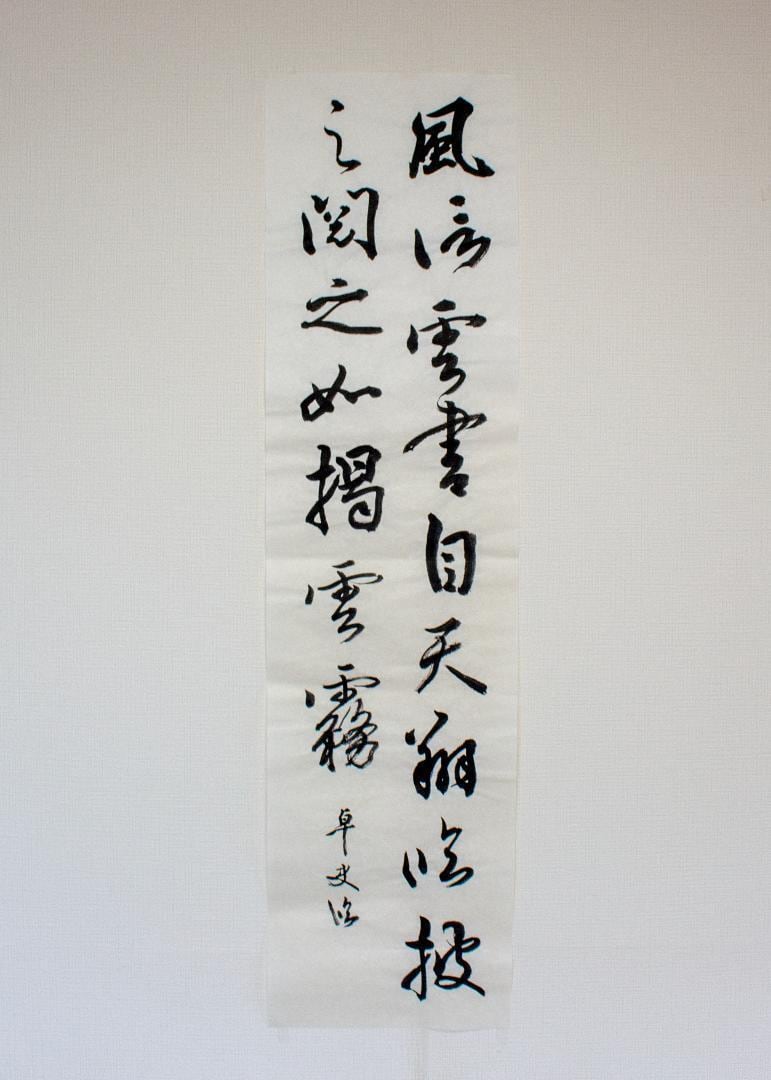 風信雲書自天翔臨披
之閲之如揭雲霧
卓史臨